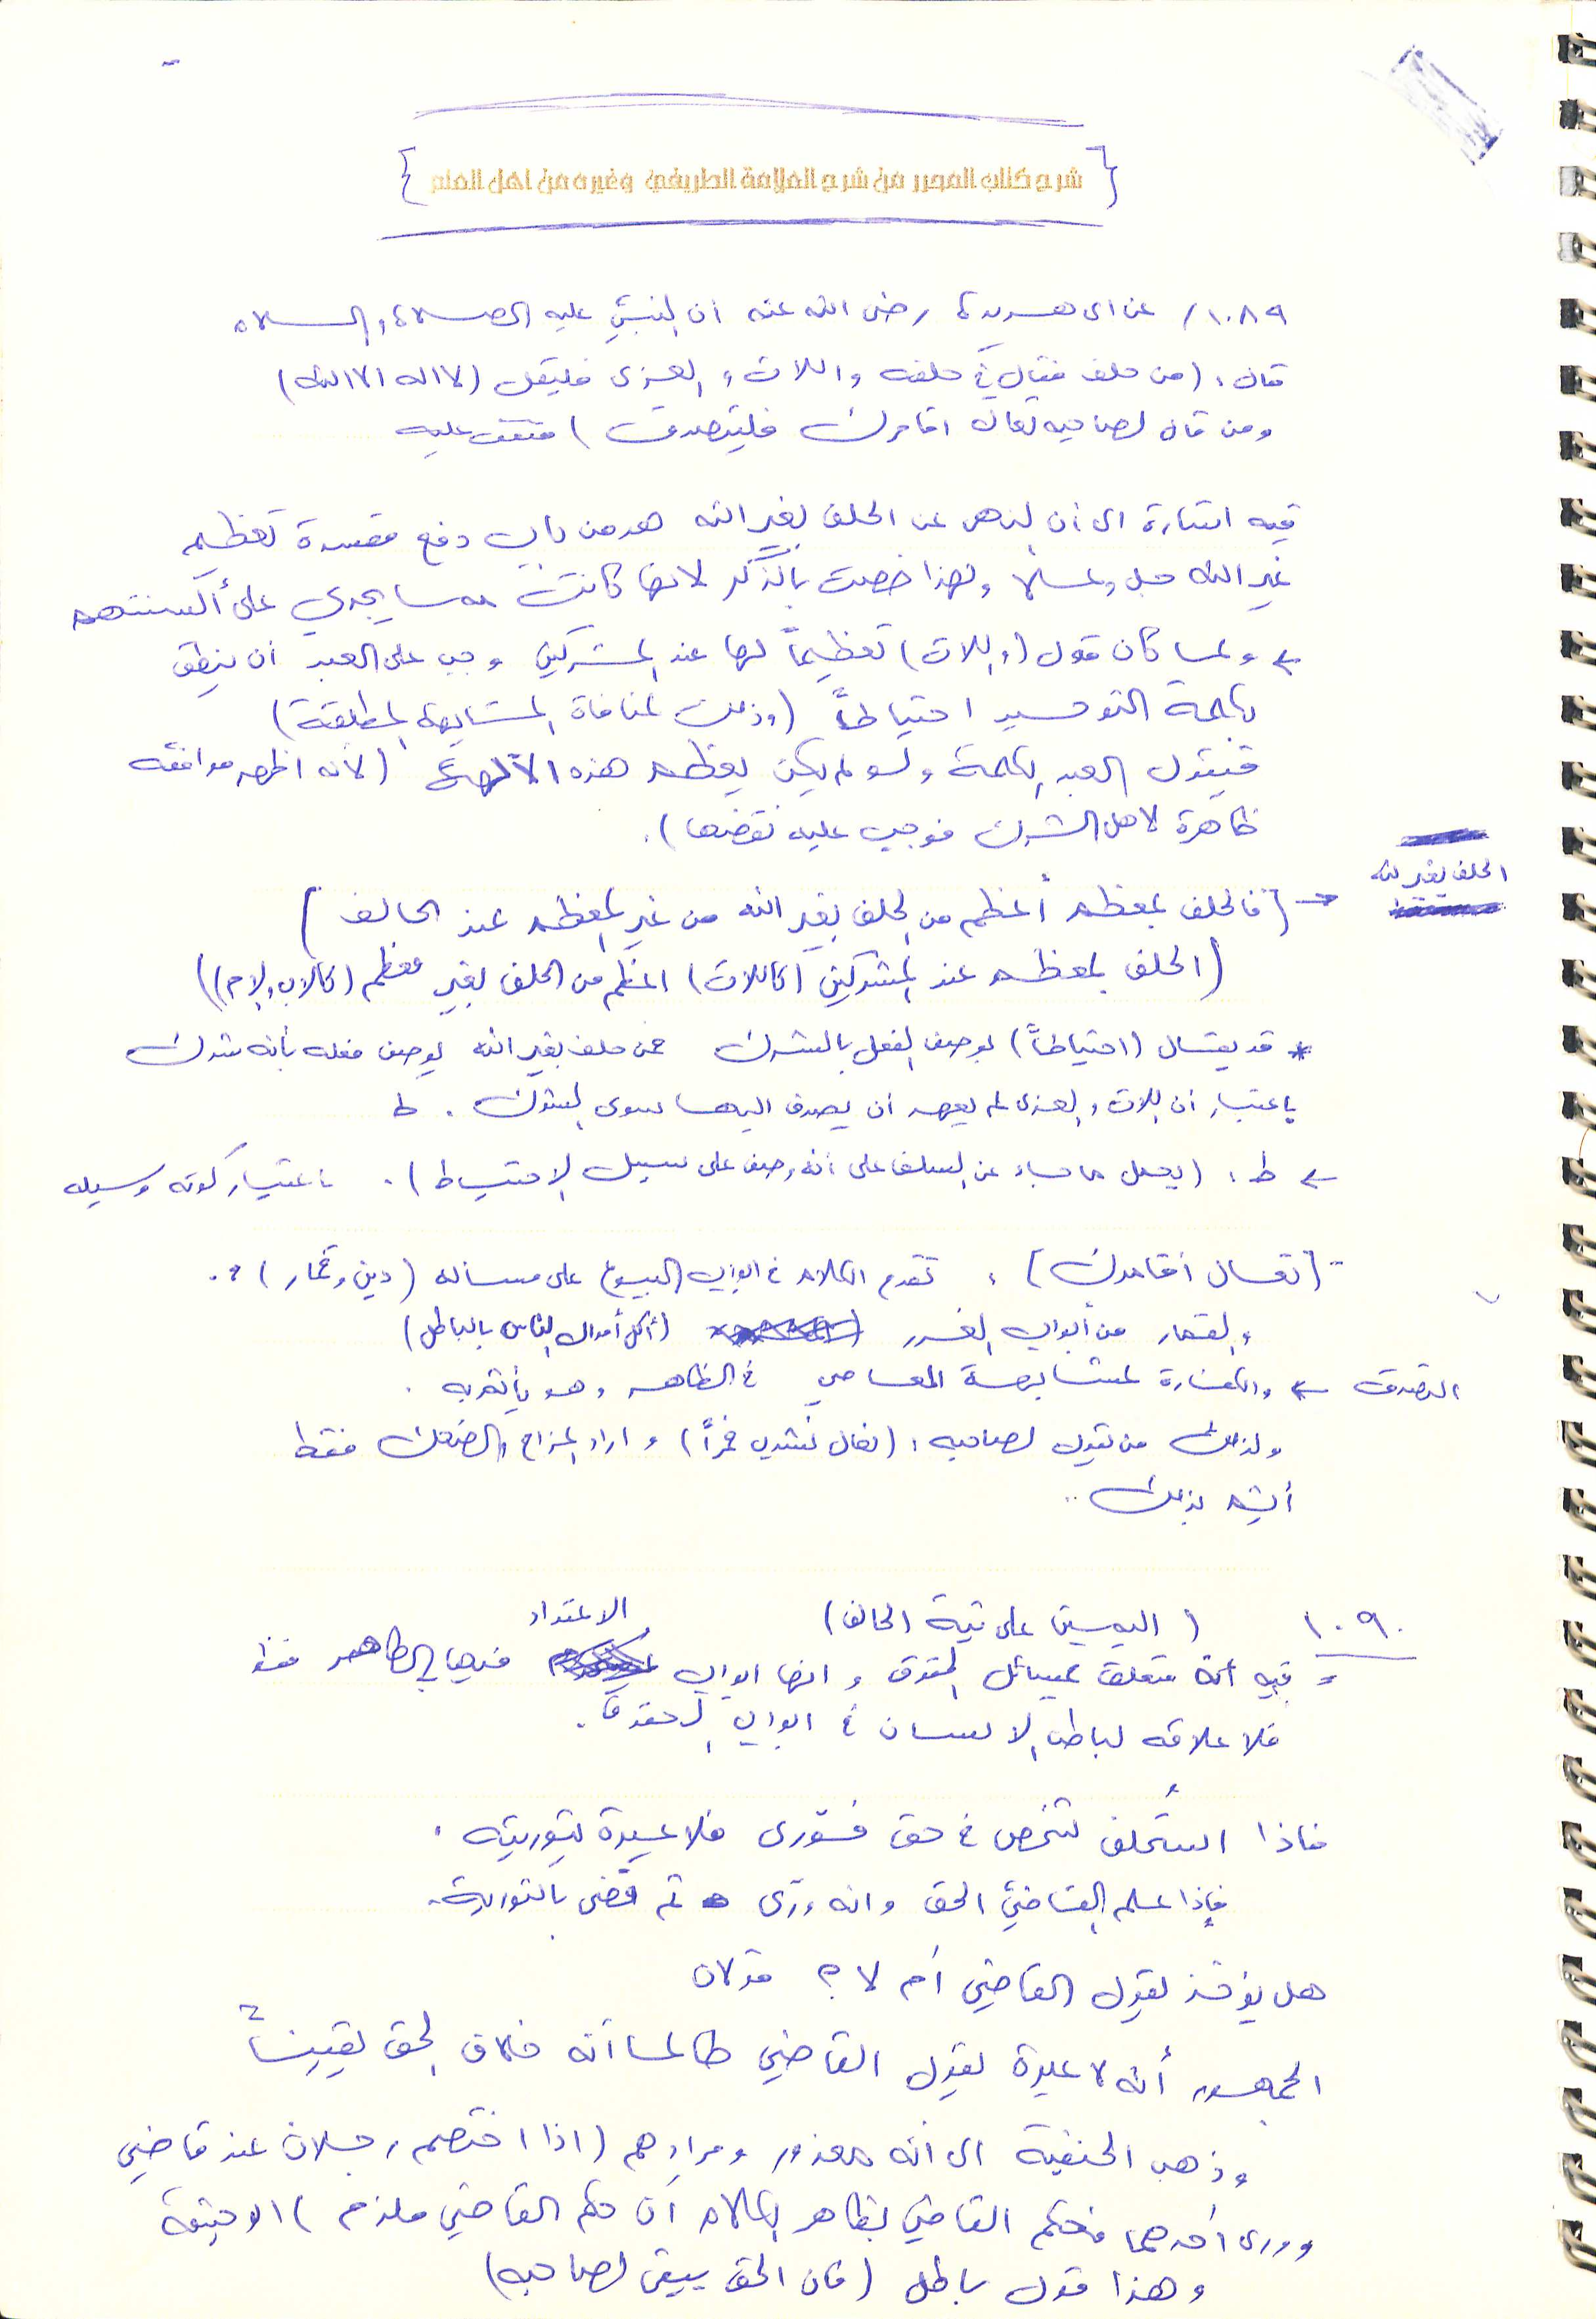 { شرح كتاب المحرر من شرح العلامة الطريفي وغيره من اهل العلم }
١٠٨٩/ عن ابي هريرة رضي الله عنه ان النبي عليه الصلاة والسلام
قال: (من حلف فقال في حلفه واللات والعزى فليقل (لا اله الا الله)
ومن قال لصاحبه تعال اقامرك فليتصدق) متفق عليه
فيه اشارة الى أن النهي عن الحلف بغير الله هو من باب دفع مفسدة تعظيم
غير الله جل وعلا ولهذا خصت بالذكر لانها كانت مما يجري على ألسنتهم
← ولما كان قول (واللات) تعظيماً لها عند المشركين وجب على العبد أن ينطق
بكلمة التوحيد احتياطاً (وذلك لمنافاة المشابهة المطلقة)
فيقول العبد الكلمة ولو لم يكن يعظم هذه الآلهة (لأنه اظهر موافقه
ظاهرة لاهل الشرك فوجب عليه نقضها).
الحلف بغير الله
← [فالحلف بمعظم أعظم من الحلف بغير الله من غير المعظم عند الحالف]
(الحلف بالمعظم عند المشركين (كاللات) اعظم من الحلف بغير معظم (كالاب والام))
* قد يقال (احتياطاً) يوصف الفعل بالشرك فمن حلف بغير الله يوصف فعله بأنه شرك
باعتبار أن اللات والعزى لم يعهد أن يصرف اليها سوى الشرك. ط
← ط: (يحمل ما جاء عن السلف على أنه وصف على سبيل الاحتياط). باعتبار كونه وسيله
- [تعال أقامرك]: تقدم الكلام في ابواب البيوع على مساله (دين وقمار)؟.
والقمار من أبواب الغرر (أكل أموال الناس بالباطل)
التصدق ← والكفارة لمشابهة المعاصي في الظاهر وهو يأثم به.
ولذلك من يقول لصاحبه: (تعال نشرب خمراً) و اراد المزاح والضحك فقط
أيثم بذلك..
١٠٩٠ (اليمين على نية الحالف)
= فيه أنه متعلق بمسائل الحقوق و انها ابواب الاعتداد فيها بالظاهر فقط
فلا علاقه لباطن الانسان في ابواب الحقوق.
فاذا استُحلف شخص في حق فورى فلا عبرة بتوريته.
فإذا علم القاضي الحق وانه ورّى ثم قضى بالتورية.
هل يؤخذ بقول القاضي أم لا؟ قولان
الجمهور أنه لا عبرة بقول القاضي طالما أنه خلاف الحق يقيناً
وذهب الحنفية الى انه معذور ومرادهم (اذا اختصم رجلان عند قاضي
وورى أحدهما فحكم القاضي بظاهر الكلام أن حكم القاضي ملزم) ابو حنيفة
وهذا قول باطل (فان الحق يبقى لصاحبه)